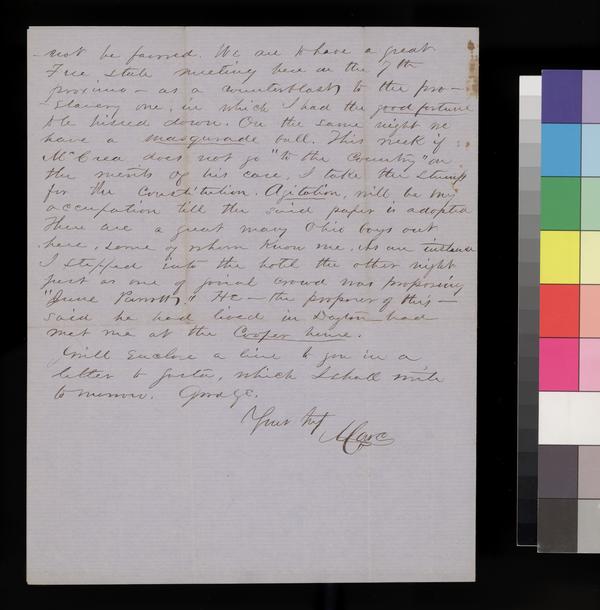 not be favored. We are to have a great
Free State meeting here on the 7th
proximo - as a counterblast to the pro-
slavery one, in which I had the good fortune
to be hissed down. On the same night we
have a masquerade ball. This week if
McCrea does not go "to the Country" on
the merits of his case, I take the Stump
for the Constitution. Agitation, will be my
occupation till the said paper is adopted
There are a great many Ohio boys out
here, some of whom know me. As an instance
I stepped into the hotel the other night
just as one of jovial crowd was proposing
"June Parrott." He - the proposer of this -
said he had lived in Dayton had
met me at the Cooper house.
I will enclose a line to you in a
letter to, which I shall write
to morrow. Good
Your